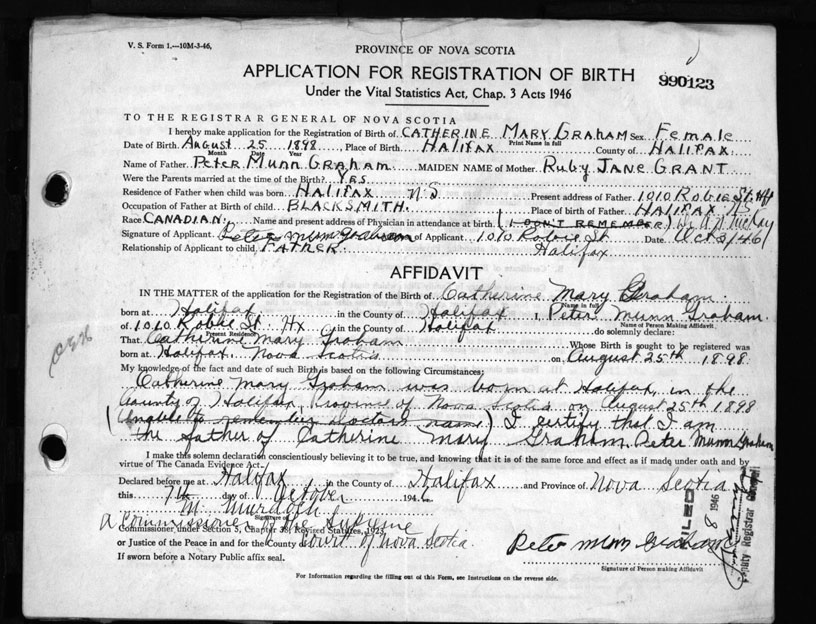 V. S. Form 1.—10M-3-46.
PROVINCE OF NOVA SCOTIA
APPLICATION FOR REGISTRATION OF BIRTH 990123
Under the Vital Statistics Act, Chap. 3 Acts 1946
TO THE REGISTRAR GENERAL OF NOVA SCOTIA
I hereby make application for the Registration of Birth of CATHERINE MARY GRAHAM Sex Female
Print Name in full
Date of Birth AUGUST 25 1898 Place of Birth HALIFAX County of HALIFAX
Month Date Year
Name of Father PETER MUNN GRAHAM MAIDEN NAME of Mother RUBY JANE GRANT
Were the Parents married at the time of the Birth? YES
Residence of Father when child was born HALIFAX N S Present address of Father 1010 ROBIE St. Hfx
Occupation of Father at Birth of child BLACKSMITH. Place of birth of Father HALIFAX N.S
Race CANADIAN. Name and present address of Physician in attendance at birth (I DON'T REMEMBER)
Signature of Applicant Peter Munn Graham of Applicant 1010 Robie St Date Oct 8/46
Relationship of Applicant to child FATHER. Halifax
AFFIDAVIT
IN THE MATTER of the application for the Registration of the Birth of Catherine Mary Graham
Name in full
born at Halifax in the County of Halifax I, Peter Munn Graham.
Name of Person Making Affidavit.
of 1010 Robie St. Hx in the County of Halifax do solemnly declare:
Present Residence
That Catherine Mary Graham Whose Birth is sought to be registered was
born at Halifax. Nova Scotia on August 25th 1898.
My knowledge of the fact and date of such Birth is based on the following Circumstances:
Catherine Mary Graham was born at Halifax, in the
County of Halifax, Province of Nova Scotia on August 25th 1898
(Unable to remember doctors name) I certify that I am
the father of Catherine Mary Graham. Peter Munn Graham
I make this solemn declaration conscientiously believing it to be true, and knowing that it is of the same force and effect as if made under oath and by
virtue of The Canada Evidence Act.
Declared before me at Halifax in the County of Halifax and Province of Nova Scotia
this 7th day of October 1946
M. Murdoch
Signature of
a Commissioner of the Supreme
Commissioner under Section 5, Chapter 38, Revised Statutes, 1923
or Justice of the Peace in and for the County Court of Nova Scotia.
If sworn before a Notary Public affix seal.
Peter Munn Graham
Signature of Person making Affidavit
For Information regarding the filling out of this Form, see Instructions on the reverse side.
FILED
8 1946
Deputy Registrar General